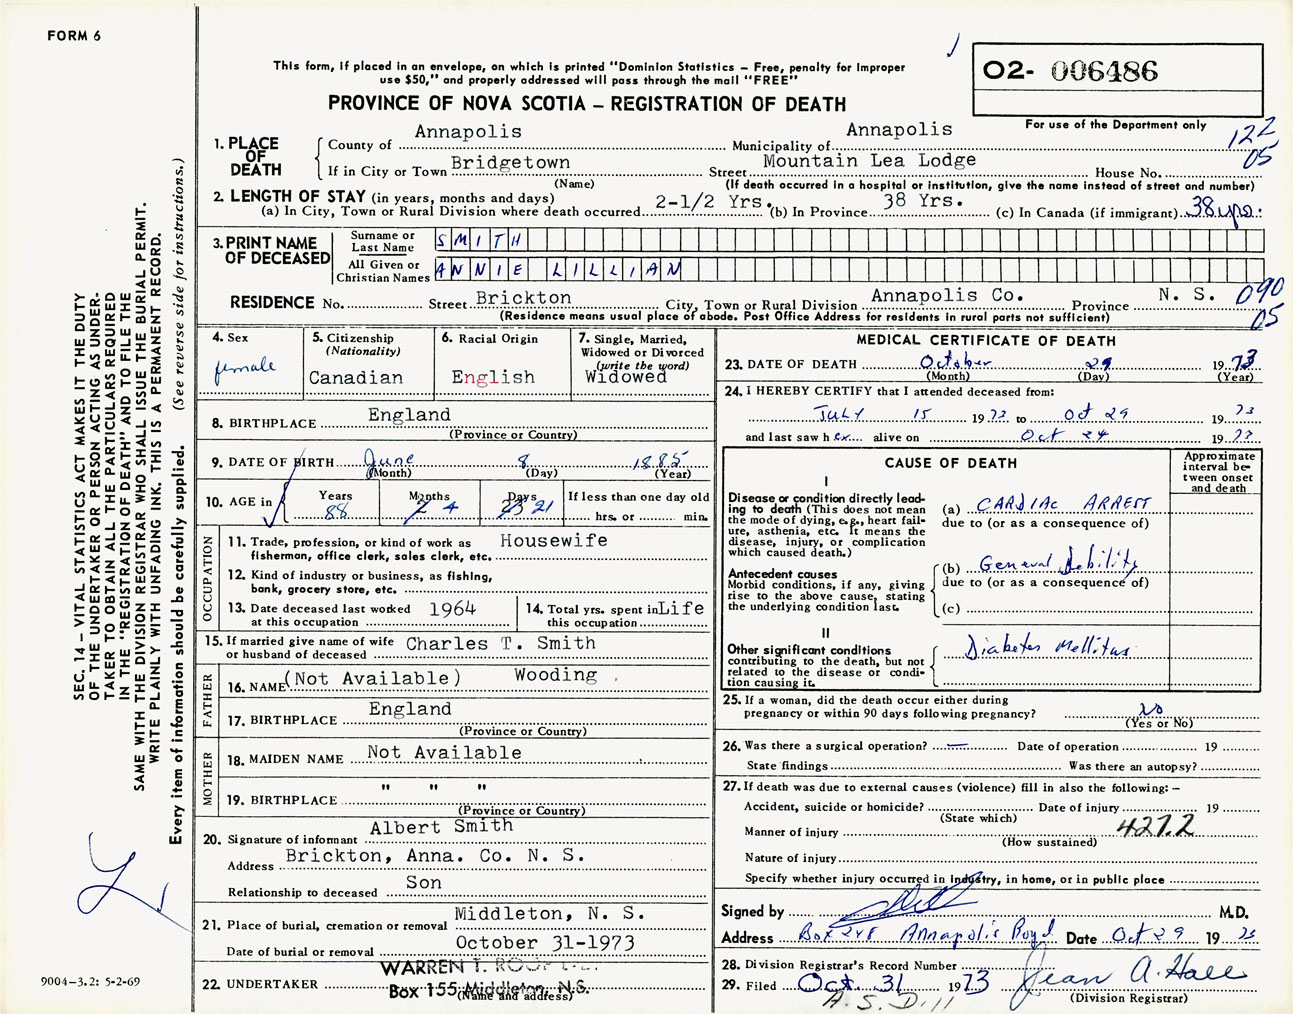 FORM 6
This form, if placed in an envelope, on which is printed "Dominion Statistics – Free, penalty for improper
use $50," and properly addressed will pass through the mail "FREE"
PROVINCE OF NOVA SCOTIA – REGISTRATION OF DEATH
O2- 006486
For use of the Department only
122
05
1. PLACE OF DEATH
County of Annapolis Municipality of Annapolis
If in City or Town Bridgetown Street Mountain Lea Lodge House No.
(Name) (If death occurred in a hospital or institution, give the name instead of street and number)
2. LENGTH OF STAY (in years, months and days)
(a) In City, Town or Rural Division where death occurred 2-1/2 Yrs. (b) In Province 38 Yrs. (c) In Canada (if immigrant) 38 yrs.
3. PRINT NAME OF DECEASED
Surname or Last Name SMITH
All Given or Christian Names ANNIE LILLIAN
RESIDENCE No. Street Brickton City, Town or Rural Division Annapolis Co. Province N. S. 090
(Residence means usual place of abode. Post Office Address for residents in rural parts not sufficient) 05
4. Sex
female
5. Citizenship
(Nationality)
Canadian
6. Racial Origin
English
7. Single, Married,
Widowed or Divorced
(write the word)
Widowed
8. BIRTHPLACE England
(Province or Country)
9. DATE OF BIRTH June 8 1885
(Month) (Day) (Year)
10. AGE in
Years Months Days If less than one day old
88 4 21 hrs. or min.
OCCUPATION
11. Trade, profession, or kind of work as Housewife
fisherman, office clerk, sales clerk, etc.
12. Kind of industry or business, as fishing,
bank, grocery store, etc.
13. Date deceased last worked 1964
at this occupation
14. Total yrs. spent in Life
this occupation
15. If married give name of wife Charles T. Smith
or husband of deceased
FATHER
16. NAME (Not Available) Wooding
17. BIRTHPLACE England
(Province or Country)
MOTHER
18. MAIDEN NAME Not Available
19. BIRTHPLACE " " "
(Province or Country)
20. Signature of informant Albert Smith
Address Brickton, Anna. Co. N. S.
Relationship to deceased Son
21. Place of burial, cremation or removal Middleton, N. S.
Date of burial or removal October 31-1973
22. UNDERTAKER WARREN T.
Box 155 Middleton, N.S.
(Name and address)
MEDICAL CERTIFICATE OF DEATH
23. DATE OF DEATH October 29 1973
(Month) (Day) (Year)
24. I HEREBY CERTIFY that I attended deceased from:
JULY 15 19 to Oct 29 19 73
and last saw her alive on Oct 24 19
CAUSE OF DEATH
Approximate
interval be-
tween onset
and death
I
Disease or condition directly lead-
ing to death (This does not mean
the mode of dying, e.g., heart fail-
ure, asthenia, etc. It means the
disease, injury, or complication
which caused death.)
(a) CARDIAC ARREST
due to (or as a consequence of)
Antecedent causes
Morbid conditions, if any, giving
rise to the above cause, stating
the underlying condition last.
(b) General Debility
due to (or as a consequence of)
(c)
II
Other significant conditions
contributing to the death, but not
related to the disease or condi-
tion causing it.
Diabetes Mellitus
25. If a woman, did the death occur either during
pregnancy or within 90 days following pregnancy? No
(Yes or No)
26. Was there a surgical operation? — Date of operation 19
State findings Was there an autopsy?
27. If death was due to external causes (violence) fill in also the following: –
Accident, suicide or homicide? Date of injury 19
(State which)
Manner of injury 427.2
(How sustained)
Nature of injury
Specify whether injury occurred in Industry, in home, or in public place
Signed by M.D.
Address Box 248 Annapolis Royal Date Oct 29 19 73
28. Division Registrar's Record Number
29. Filed Oct. 31 1973 Jean A. Hall
(Division Registrar)
SEC. 14 – VITAL STATISTICS ACT MAKES IT THE DUTY
OF THE UNDERTAKER OR PERSON ACTING AS UNDER-
TAKER TO OBTAIN ALL THE PARTICULARS REQUIRED
IN THE "REGISTRATION OF DEATH" AND TO FILE THE
SAME WITH THE DIVISION REGISTRAR WHO SHALL ISSUE THE BURIAL PERMIT.
WRITE PLAINLY WITH UNFADING INK. THIS IS A PERMANENT RECORD.
Every item of information should be carefully supplied. (See reverse side for instructions.)
9004-3.2: 5-2-69